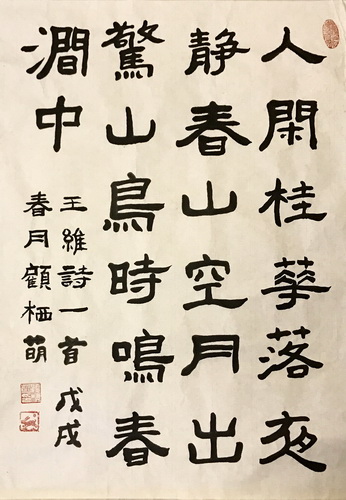 人閑桂華落夜
静春山空月出
驚山鳥時鳴春
澗中
王維詩一首戊戌
春月顧栖萌